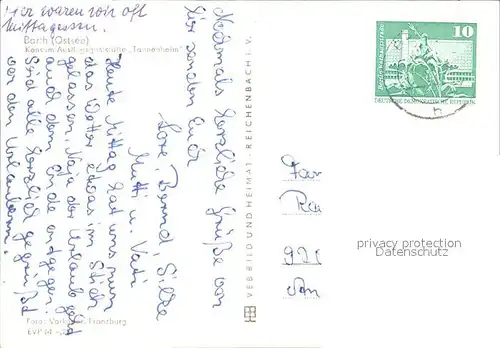 Hier waren wir oft
Mittagessen.
Barth (Ostsee)
Konsum-Ausflugsgaststätte „Tannenheim"
Nochmals herzliche Grüße von
hier senden Euch
Lore, Bernd, Silke
Mutti u. Vati
Heute Mittag hat uns nun
das Wetter etwas im Stich
gelassen. Naja der Urlaub geht
auch dem Ende entgegen.
Seid alle herzlich gegrüßt
von den Urlaubern.
Foto: Franzburg
EVP M
VEB BILD UND HEIMAT · REICHENBACH i. V.
10
DEUTSCHE DEMOKRATISCHE REPUBLIK
Fam
privacy protection
Datenschutz